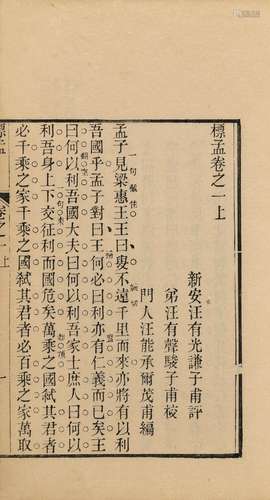 標孟卷之一上
新安汪有光謙子甫評
弟汪有聲駿子甫校
門人汪能承爾茂甫編
孟子見梁惠王王曰叟不遠千里而來亦將有以利
吾國乎孟子對曰王何必曰利亦有仁義而已矣王
曰何以利吾國大夫曰何以利吾家士庶人曰何以
利吾身上下交征利而國危矣萬乘之國弒其君者
必千乘之家千乘之國弒其君者必百乘之家萬取
標孟
卷之一上
一